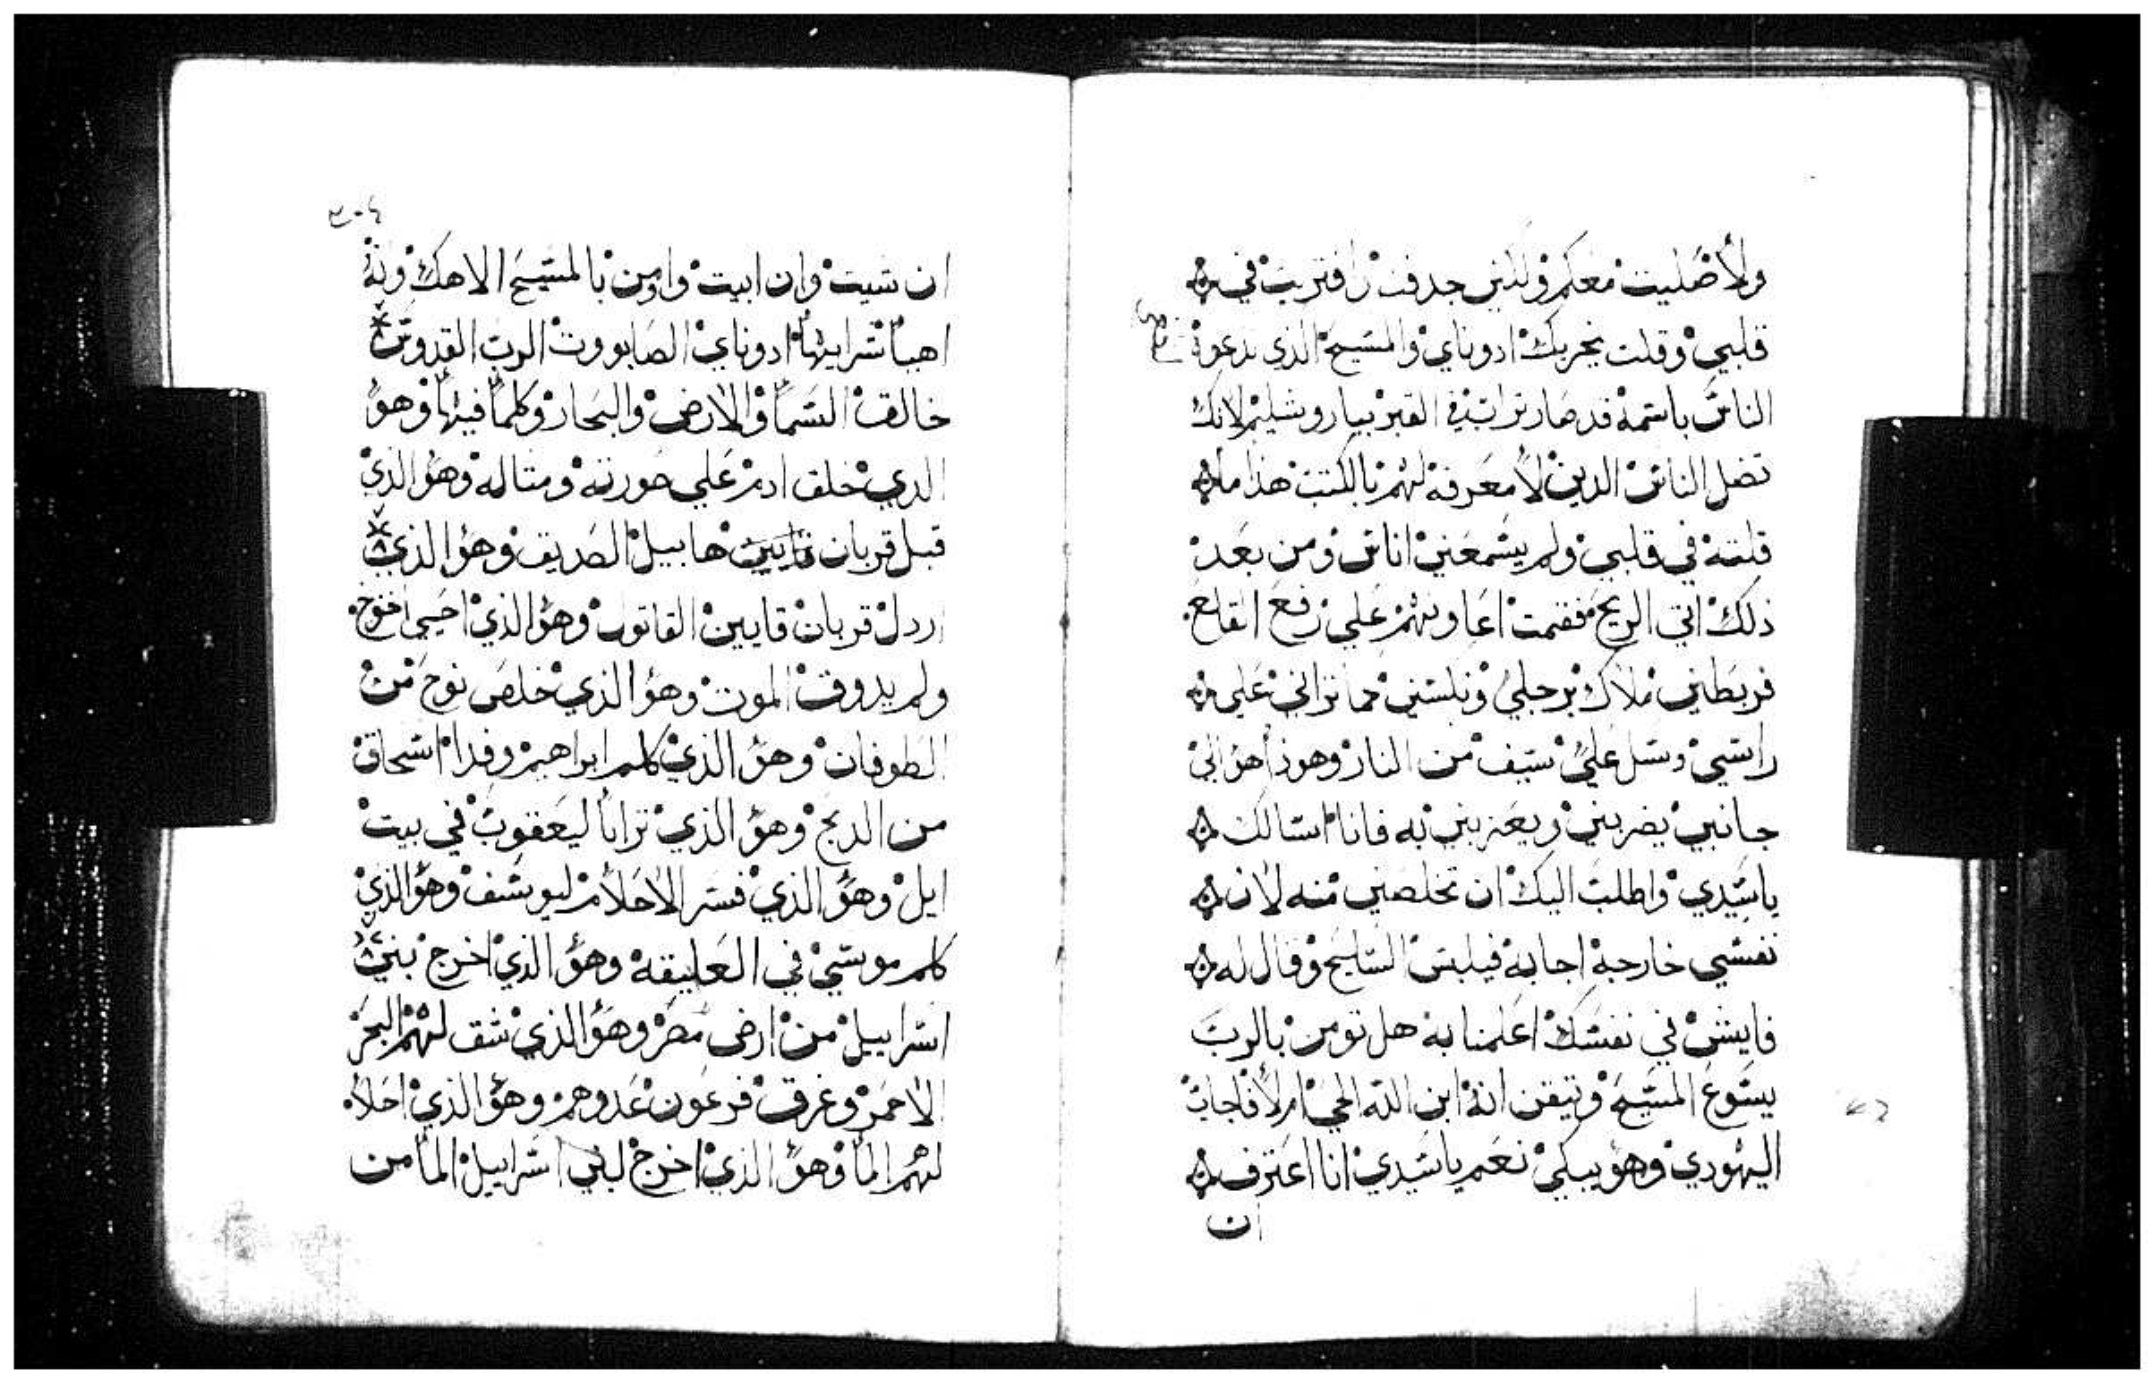 ولا صليت معكم ولاكن جدفت وافتريت في
قلبي وقلت نخربك ادوناي والمسيح الذي تدعوا
الناس باسمه قد صار تراب في القبر بيار وشليم لانك
تضل الناس الدين لا معرفة لهم بالكتب هذا ما
قلته في قلبي ولم يسمعني اناس ومن بعد
ذلك اتي الريح فقمت اعاونهم علي رفع القلع
فربطني ملاك برجلي ونكسني كما تراني علي
راسي وسل علي سيف من النار وهوذا هو الي
جانبي يضربني ويعذبني به فانا اسالك
ياسيدي واطلب اليك ان تخلصني منه لان
نفسي خارجة اجابه فيلبس السليح وقال له
فايش في نفسك اعلمنا به هل تومن بالرب
يسوع المسيح وتيقن انه ابن الله الحي ام لا فاجاب
اليهودي وهو يبكي نعم ياسيدي انا اعترف
ان
٣٠٤
ان شيت وان ابيت واومن بالمسيح الاهك وانه
اهيا شراهيا ادوناي الصابووت الرب القدوس
خالق السما والارض والبحار وكلما فيها وهو
الدي خلق ادم علي صورته ومثاله وهو الذي
قبل قربان هابيل الصديق وهو الذي
اردل قربان قايين القاتول وهو الذي احيي اخنوخ
ولم يدوق الموت وهو الذي خلص نوح من
الطوفان وهو الذي كلم ابراهيم وفدا اسحاق
من الدبح وهو الذي ترايا ليعقوب في بيت
ايل وهو الذي فسر الاحلام ليوسف وهو الذي
كلم موسي في العليقة وهو الذي اخرج بني
اسراييل من ارض مصر وهو الذي شق لهم البحر
الاحمر وغرق فرعون عدوهم وهو الذي احلا
لهم الما وهو الذي اخرج لبني اسراييل الما من